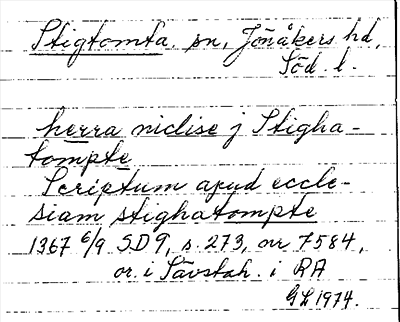 Stigtomta. sn, Jönåkers hd,
Söd. l.
herra niclise j Stigha-
tompte
Scriptum apud eccle-
siam stighatompte
1367 6/9 SD 9, s. 273, nr 7584,
or. i Sävstah. i RA
GL 1974.